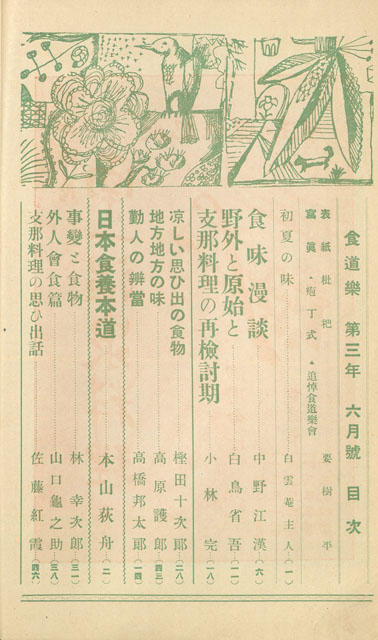 食道樂 第三年 六月號 目次
表紙 枇杷 要樹平
寫眞 ・庖丁式 ・追悼食道樂會
初夏の味 白雲菴主人(一)
食味漫談 中野江漢(六)
野外と原始と 白鳥省吾(一一)
支那料理の再檢討期 小林完(一八)
凉しい思ひ出の食物 樫田十次郎(二八)
地方地方の味 高原護郎(四三)
勤人の辨當 高橋邦太郎(一四)
日本食養本道 本山荻舟(二)
事變と食物 林幸次郎(三一)
外人會食篇 山口龜之助(三八)
支那料理の思ひ出話 佐藤紅霞(四六)